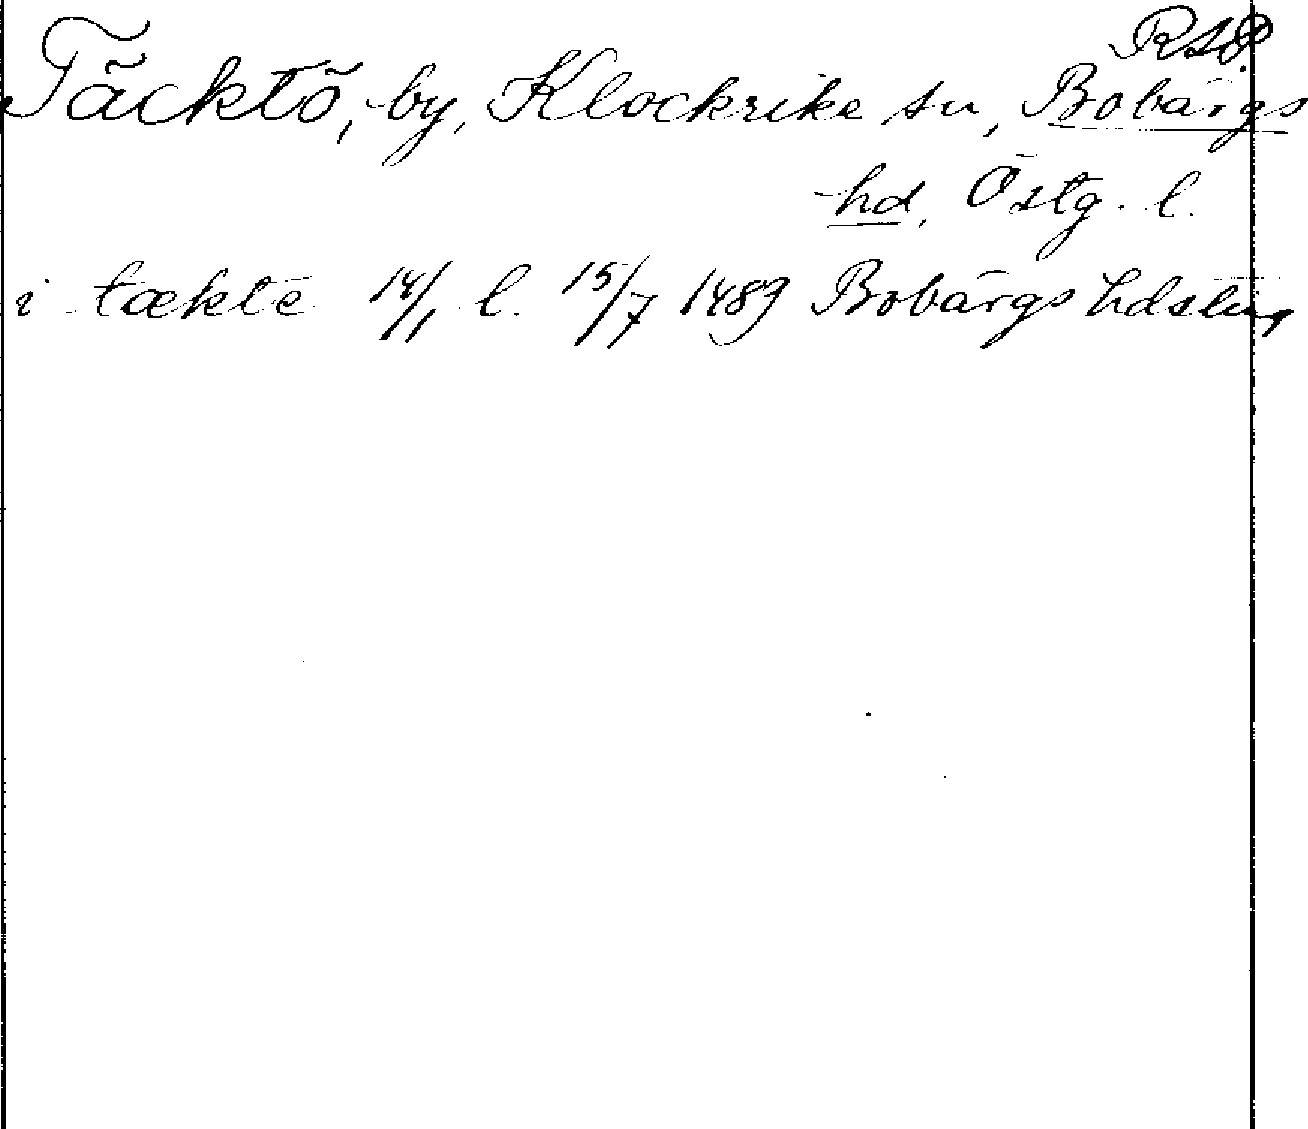 Täcktö, by, Klockrike sn, Bobärgs
hd, Östg. l.
i tækte 14/1 l. 15/7 1489 Bobärgs hdsting